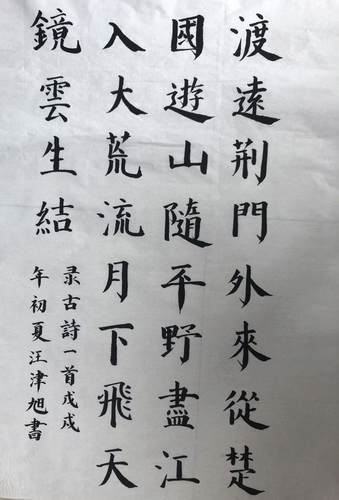 渡遠荆門外來從楚
國遊山隨平野盡江
入大荒流月下飛天
鏡雲生結
录古詩一首戊戌
年初夏汪津旭書